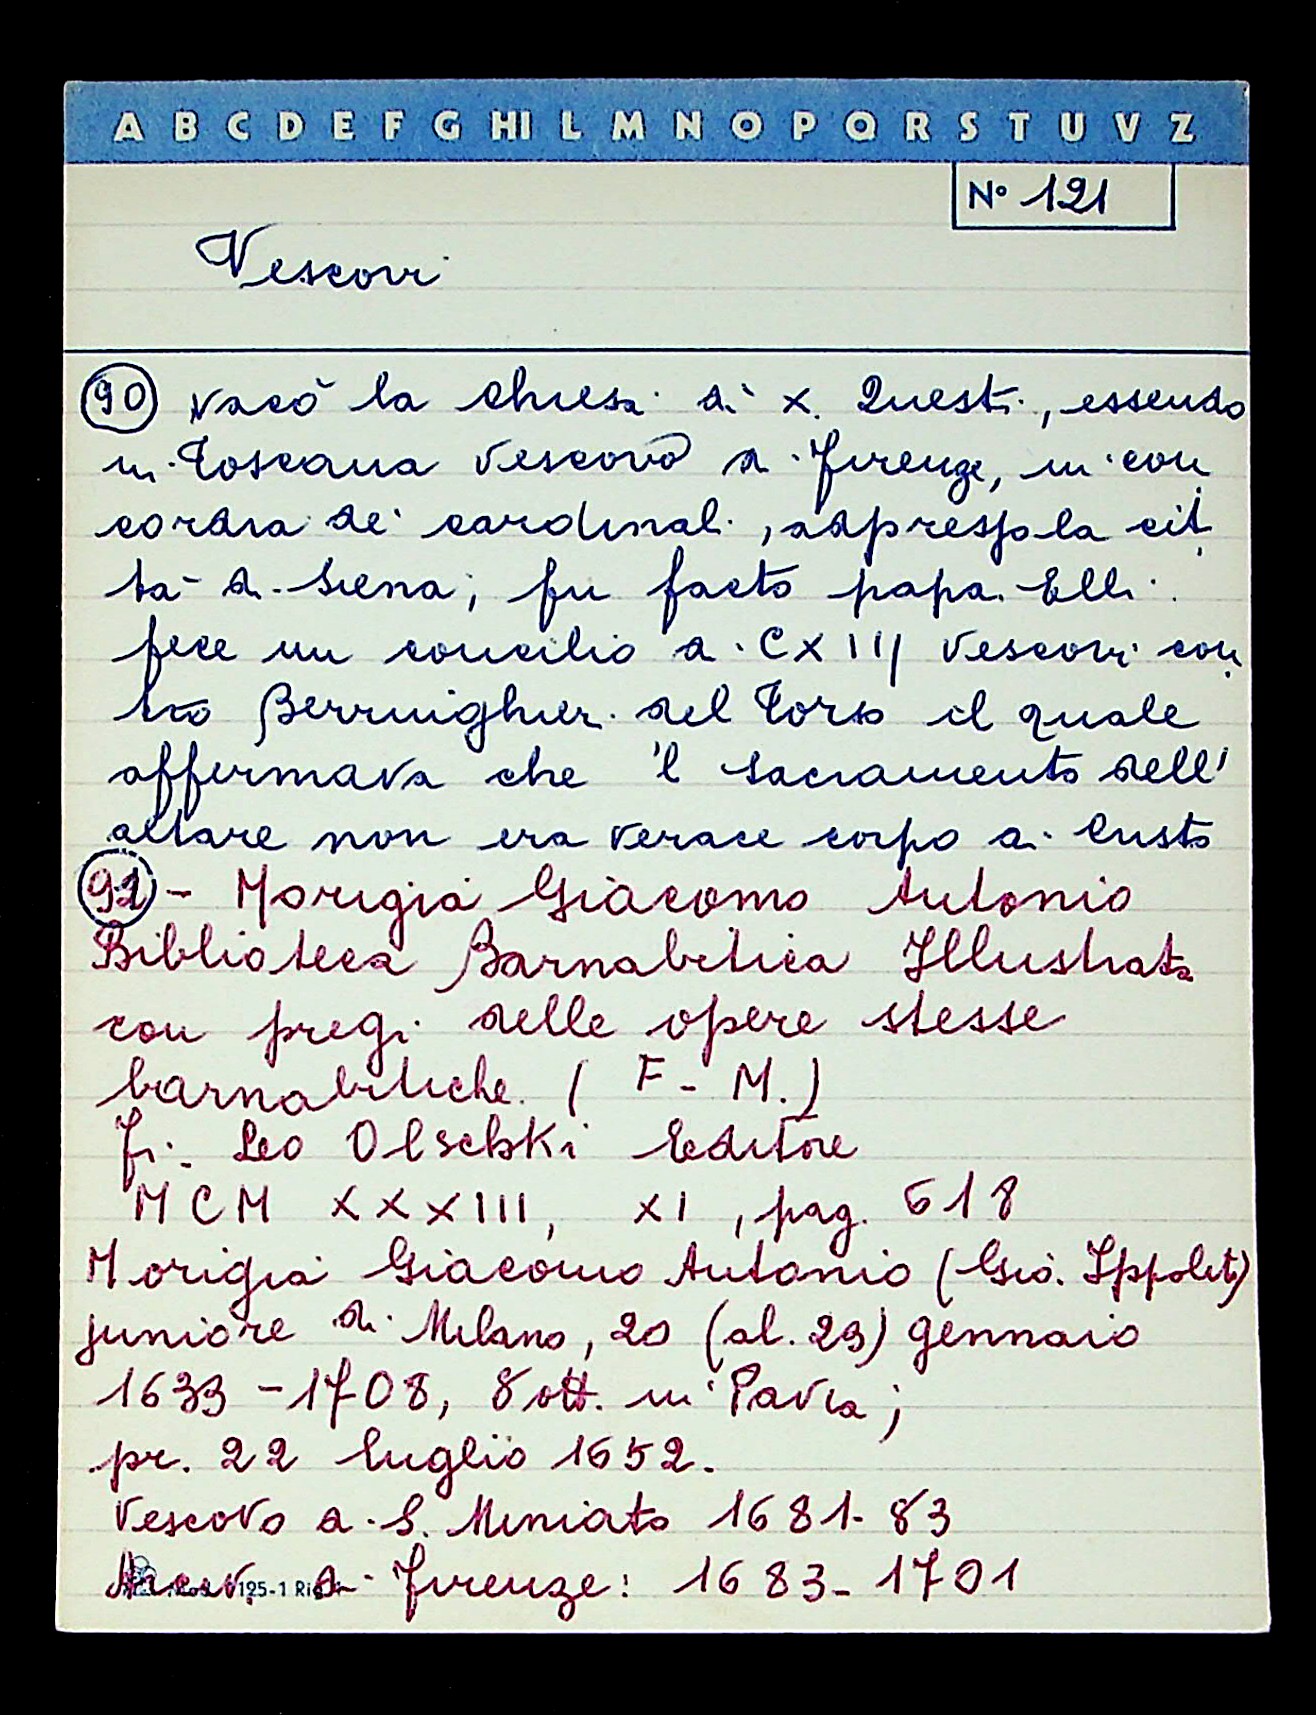 A B C D E F G HI L M N O P Q R S T U V Z
N° 121
Vescovi
90 vacò la chiesa dì X. Questi, essendo
in Toscana vescovo di Firenze, in con
cordia de' cardinali, adpresso la cit
tà di Siena; fu facto papa. Elli
fece un concilio di CXIIJ vescovi con
tro Berrnighier del Torso il quale
affermava che 'l sacramento dell'
altare non era verace corpo di Cristo
91 - Morigia Giacomo Antonio
Biblioteca Barnabitica Illustrata
con pregi delle opere stesse
barnabitiche. ( F - M.)
Fi. Leo Olschki Editore
MCM XXXIII, XI, pag. 618
Morigia Giacomo Antonio (Gio. Ippolito)
juniore di Milano, 20 (al. 23) gennaio
1633 - 1708, 8 ott. in Pavia;
pr. 22 luglio 1652.
Vescovo di S. Miniato 1681-83
Arciv. di Firenze: 1683-1701
125-1 Rig